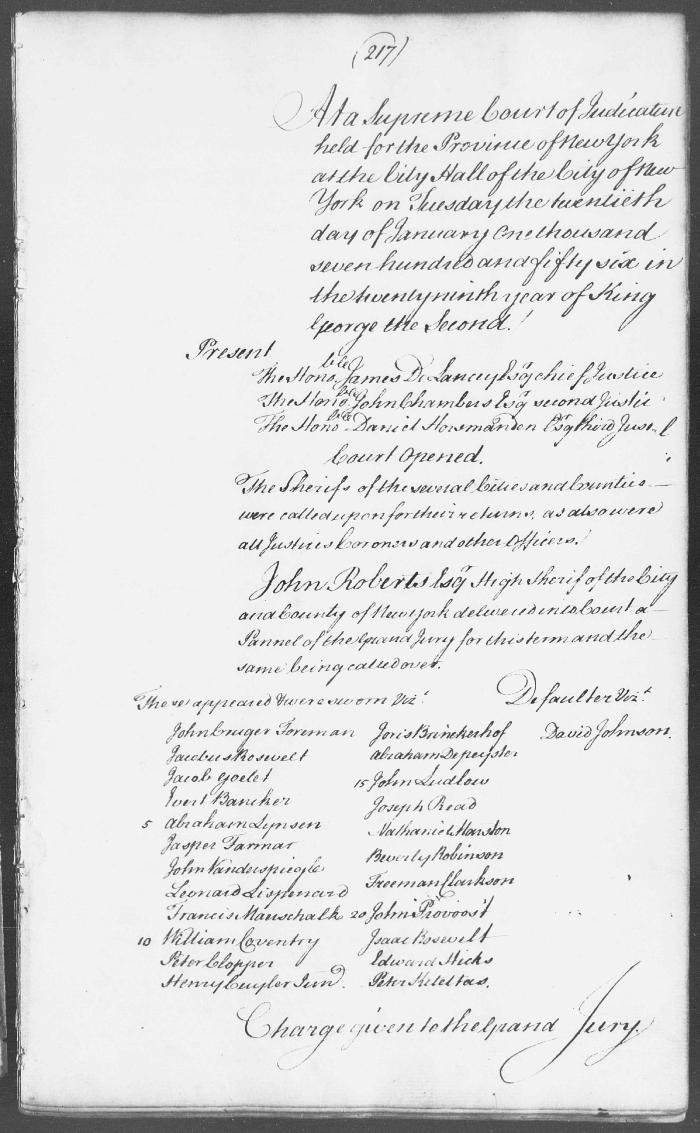 (217)
At a Supreme Court of Judicature
held for the Province of New York
at the City Hall of the City of New
York on Tuesday the twentieth
day of January one thousand
seven hundred and fifty six in
the twenty ninth year of King
George the Second.
Present
The Honoble James De Lancey Esqr chief Justice
The Honoble John Chambers Esqr second Justic
The Honoble Daniel Horsmanden Esqr third Just
Court Opened.
The Sherifs of the several Cities and Counties
were called upon for their returns, as also were
all Justices Coroners and other Officers.
John Roberts Esqr High Sherif of the City
and County of New York delivered into Court a
Pannel of the Grand Jury for this term and the
same being called over.
These appeared & were sworn Vizt.
John Cruger Foreman
Jacobus Rosevelt
Jacob Goelet
Evert Bancker
5 Abraham Lynsen
Jasper Farmar
John Vanderspiegle
Leonard Lispenard
Francis Maerschalk
10 William Coventry
Peter Clopper
Henry Cuyler Junr.
Joris Brinckerhof
Abraham Depeyster
15 John Ludlow
Joseph Read
Nathaniel Marston
Beverly Robinson
Freeman Clarkson
20 John Provoost
Isaac Rosevelt
Edward Hicks
Peter Keteltas.
Defaulter Vizt
David Johnson.
Charge given to the Grand Jury.